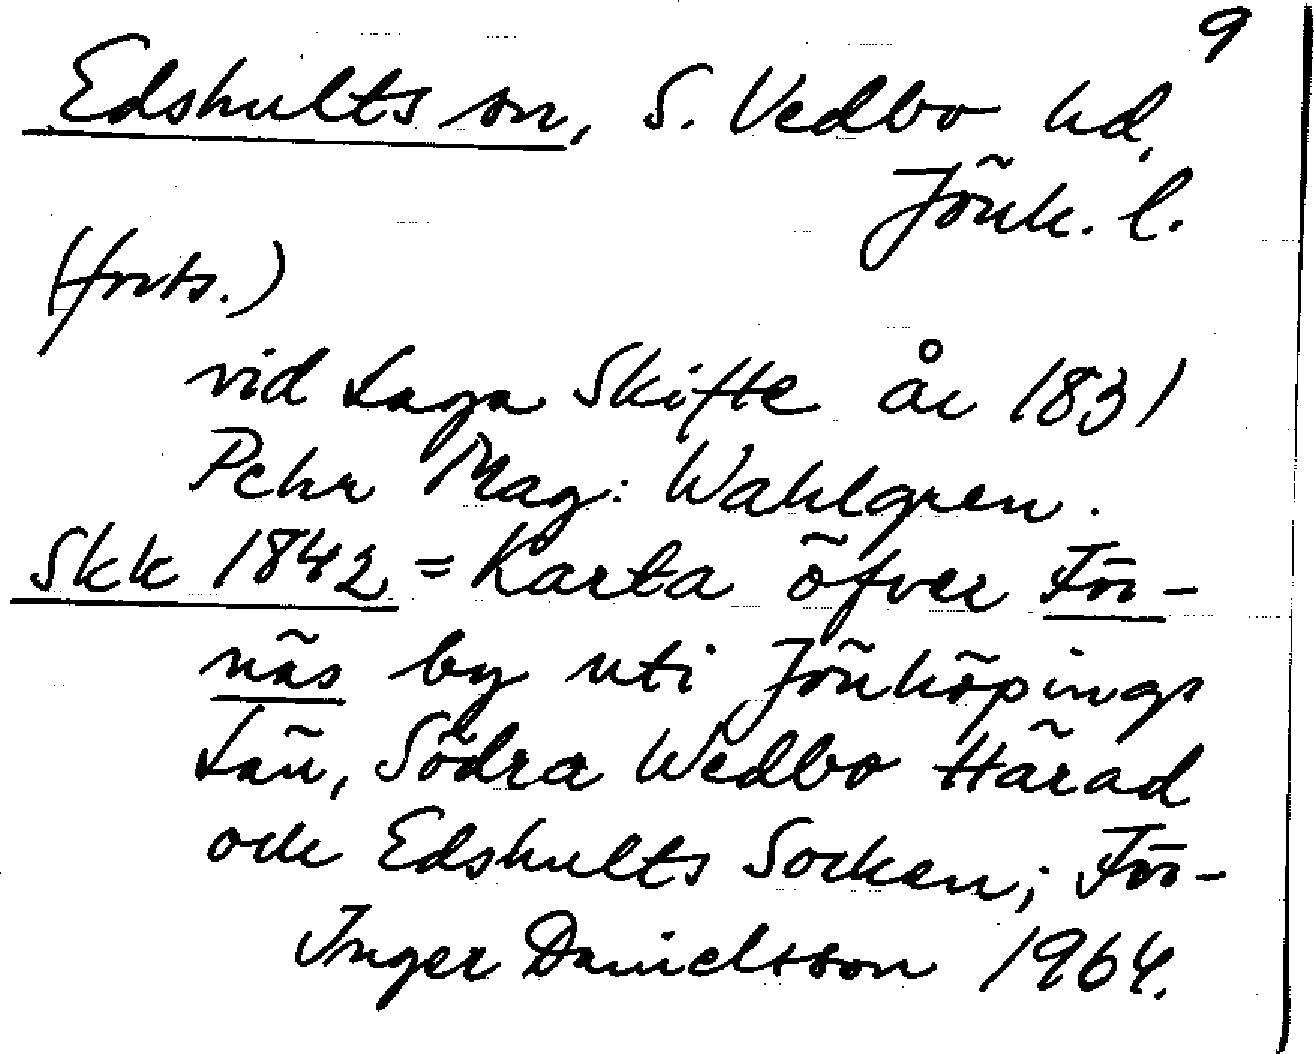 9
Edshults sn, S. Vedbo hd,
Jönk. l.
(forts.)
vid Laga Skifte år 1831
Pehr Mag: Wahlgren.
Skk 1842 = Karta öfver För-
näs by uti Jönköpings
Län, Södra Wedbo Härad
och Edshults Socken; För-
Inger Danielsson 1964.